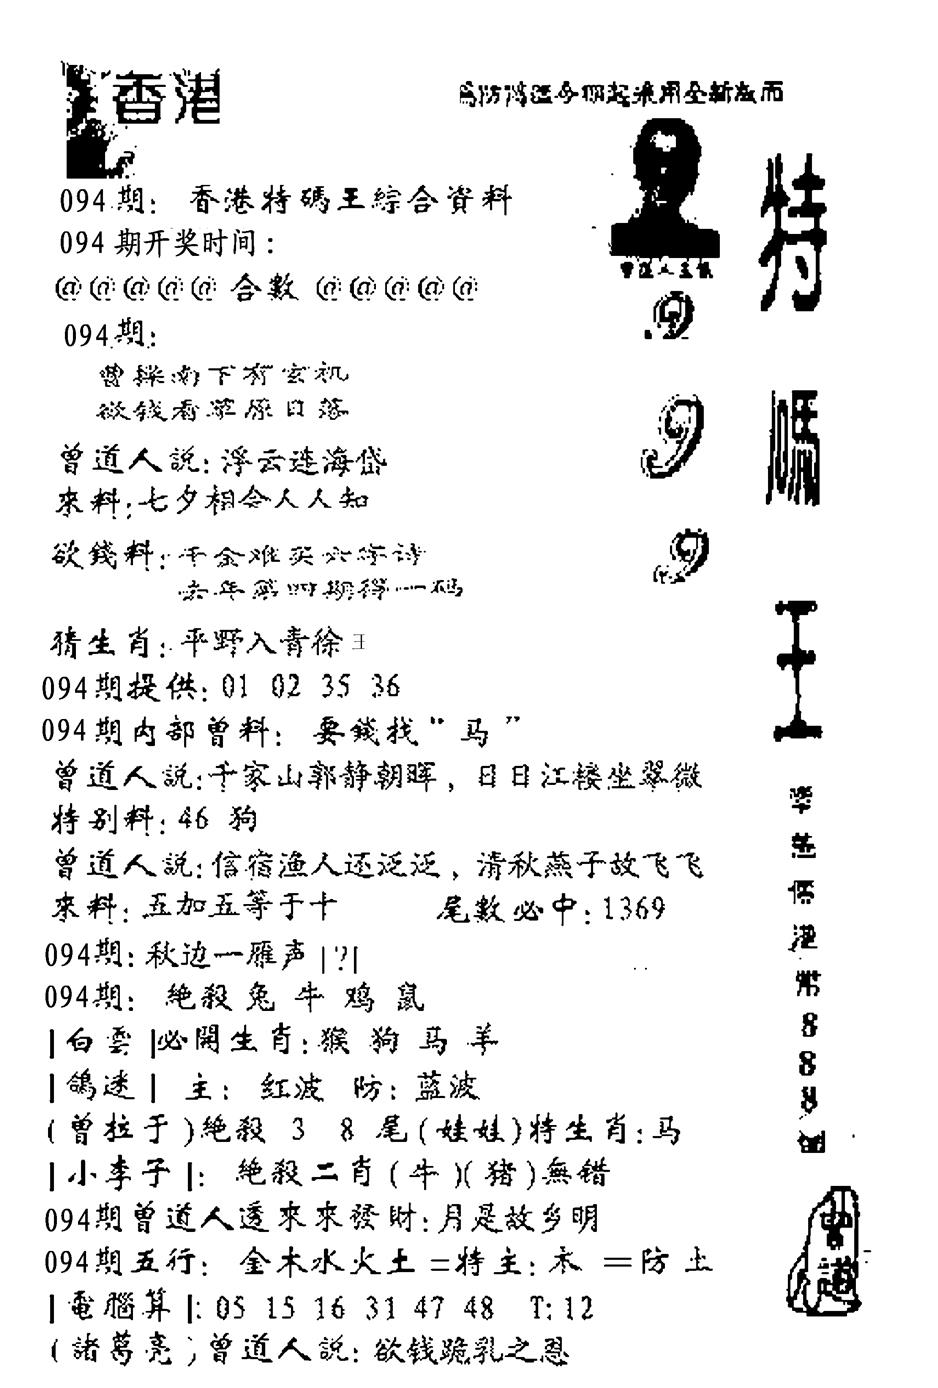 香港
094期: 香港特碼王綜合資料
094期开奖时间:
@@@@@ 合數 @@@@@
094期:
曹操南下有玄机
欲钱看草原日落
曾道人説:浮云连海岱
來料:七夕相会人人知
欲錢料:千金难买六字诗
去年第四期得一码
猜生肖:平野入青徐王
094期提供:01 02 35 36
094期内部曾料: 要錢找“马”
曾道人説:千家山郭静朝晖,日日江楼坐翠微
特别料:46 狗
曾道人説:信宿渔人还泛泛,清秋燕子故飞飞
來料:五加五等于十 尾數必中:1369
094期:秋边一雁声|?|
094期: 絶殺 兔 牛 鸡 鼠
|白雲|必開生肖:猴 狗 马 羊
|鴿迷| 主: 红波 防: 蓝波
(曾拉于)絶殺 3 8 尾(娃娃)特生肖:马
|小李子|: 絶殺二肖(牛)(猪)無错
094期曾道人透來來發財:月是故乡明
094期五行: 金木水火土=特主:木 =防 土
|電腦算|:05 15 16 31 47 48 T:12
(諸葛亮)曾道人説:欲钱跪乳之恩
特
碼
王
888
曾道